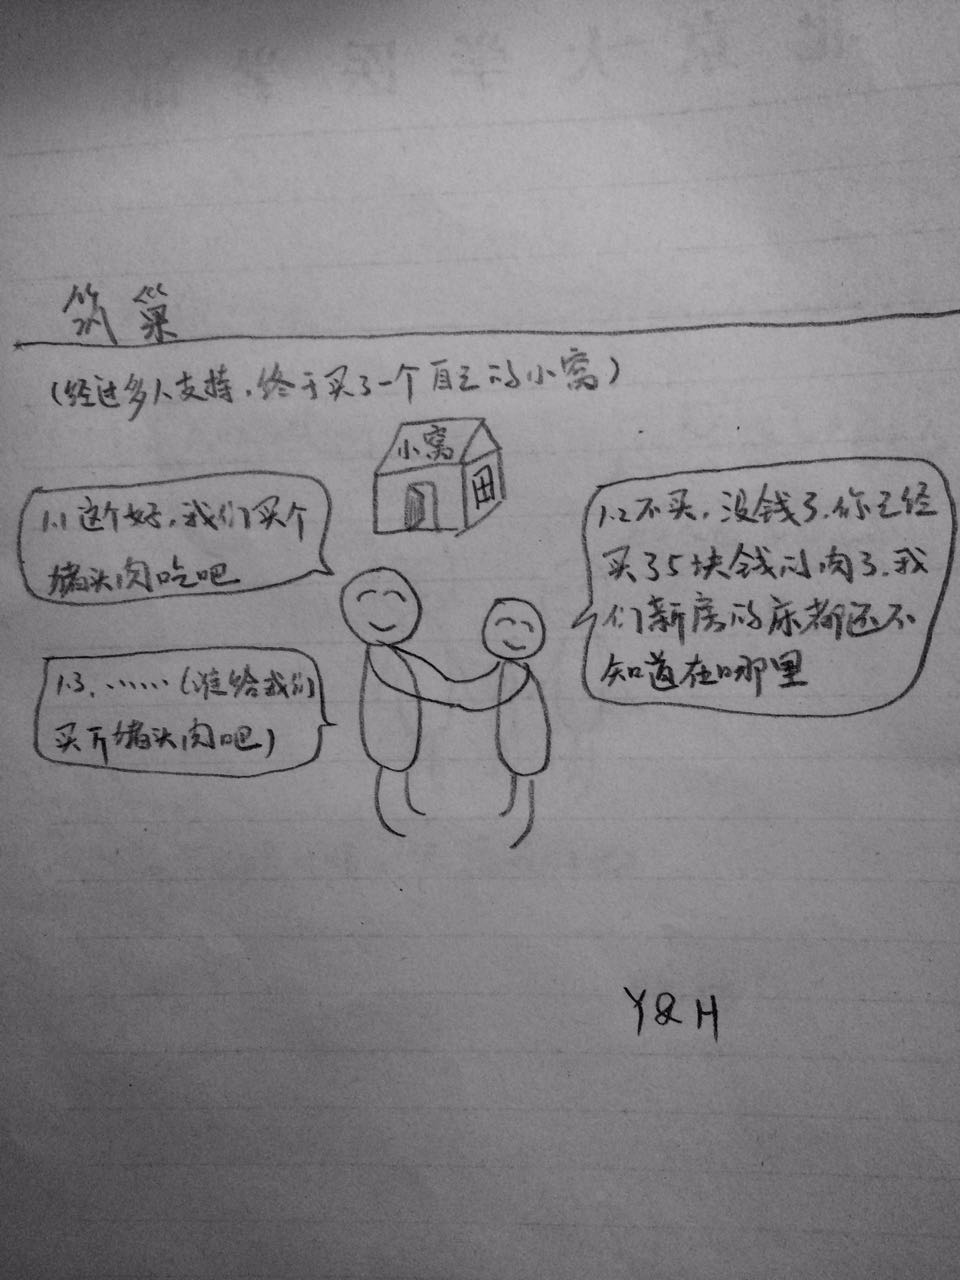 北京大学医学部
筑巢
(经过多人支持,终于买了一个自己的小窝)
小窝
1.1 这个好,我们买个
猪头肉吃吧
1.2 不买,没钱了.你已经
买了5块钱的肉了.我
们新房的床都还不
知道在哪里
1.3、……(谁给我们
买斤猪头肉吧)
Y & H